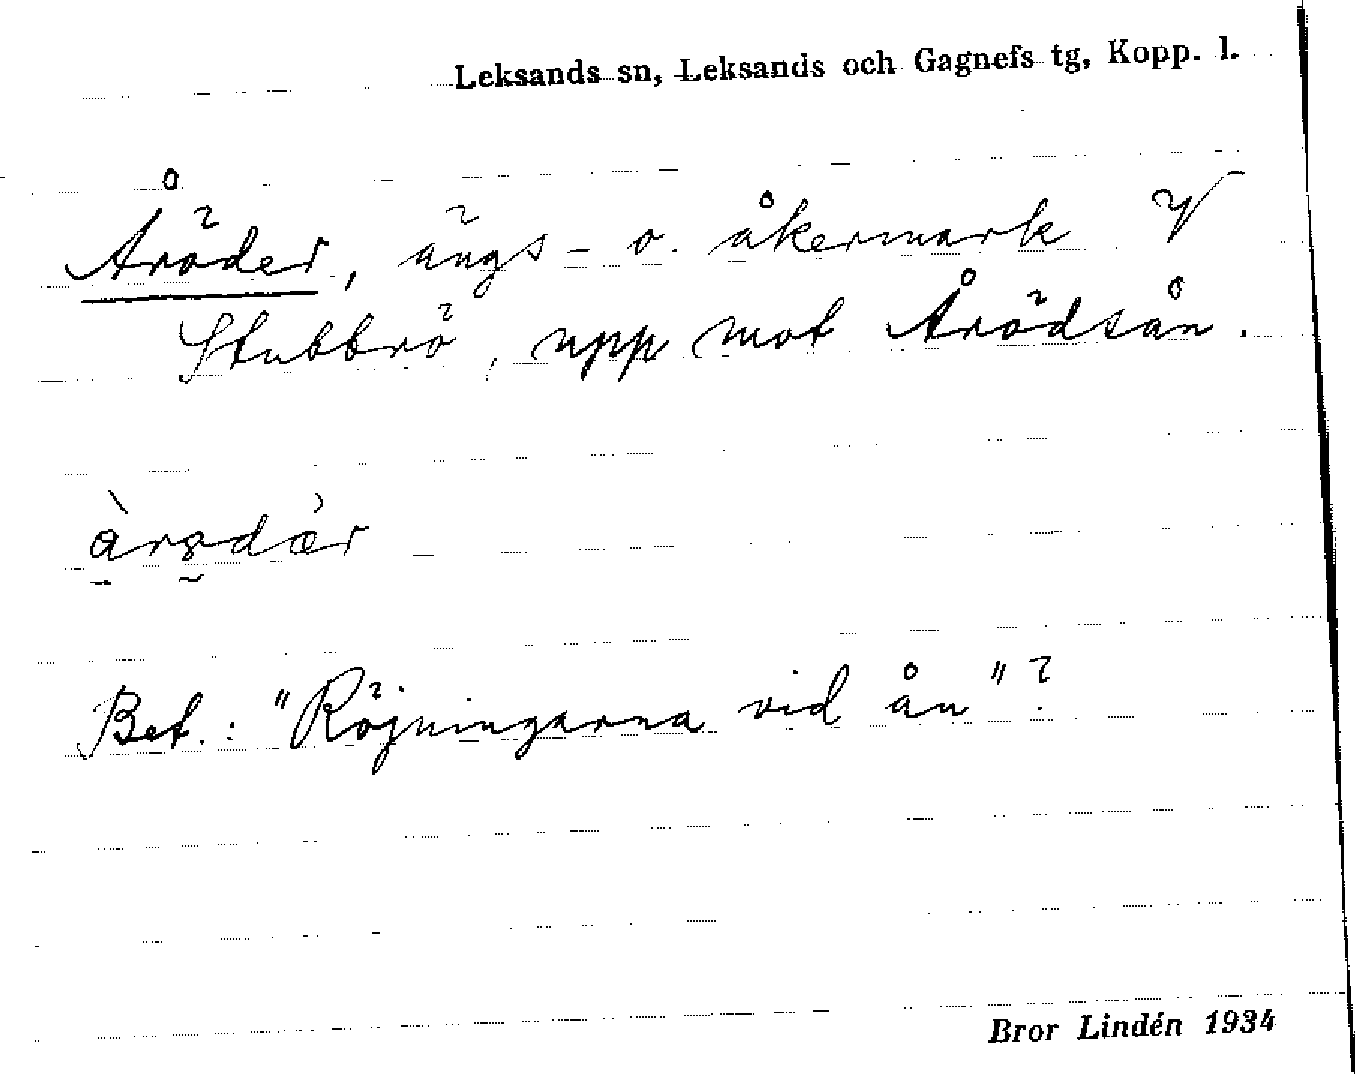 Leksands sn, Leksands och Gagnefs tg, Kopp. l.
Åröder, ängs- o. åkermark V
Stubbrö, upp mot Årödsån.
Bet.: "Röjningarna vid ån"?
Bror Lindén 1934